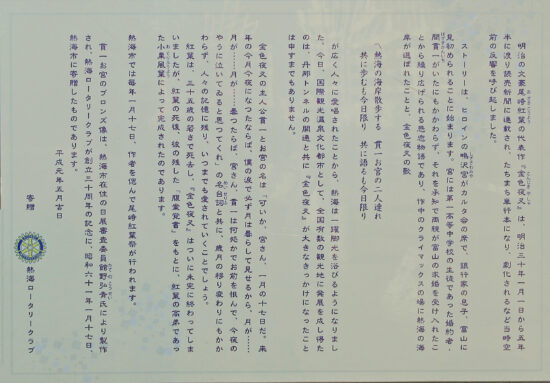 明治の文豪尾崎紅葉の代表作『金色夜叉』は、明治三十年一月一日から五年
半に渡り読売新聞に連載され、たちまち単行本になり、劇化されるなど当時空
前の反響を呼び起しました。
ストーリーは、ヒロインの鴫沢宮がカルタ会の席で、銀行家の息子、富山に
見初められることに始まります。宮には第一高等中学校の生徒であった婚約者・
間貫一がいたにもかかわらず、それを承知で両親が富山の求婚を受け入れたこ
とから繰り広げられる悲恋物語であり、作中のクライマックスの場に熱海の海
岸が選ばれたことと、金色夜叉の歌
〽熱海の海岸散歩する 貫一お宮の二人連れ
共に歩むも今日限り 共に語るも今日限り
が広く人々に愛唱されたことから、熱海は一躍脚光を浴びるようになりまし
た。今日、国際観光温泉文化都市として、全国有数の観光地に発展を成し得た
のは、丹那トンネルの開通と共に『金色夜叉』が大きなきっかけになったこと
は申すまでもありません。
金色夜叉の主人公貫一とお宮の名は「可いか、宮さん、一月の十七日だ。来
年の今月今夜になったならば、僕の涙で必ず月は曇らして見せるから、月が……
月が……月が……曇ったらば、宮さん、貫一は何処かでお前を恨んで、今夜の
やうに泣いてゐると思ってくれ」の名台詞と共に、歳月の移り変わりにもかか
わらず、人々の記憶に残り、いつまでも愛されていくことでしょう。
紅葉は、三十五歳の若さで死去し、『金色夜叉』はついに未完に終わってしま
いましたが、紅葉の死後、彼の残した「腹案覚書」をもとに、紅葉の高弟であっ
た小栗風葉によって完成されたのであります。
熱海市では毎年一月十七日、作者を偲んで尾崎紅葉祭が行われます。
貫一お宮のブロンズ像は、熱海市在住の日展審査委員館野弘青氏により製作
され、熱海ロータリークラブが創立三十周年の記念に、昭和六十一年一月十七日、
熱海市に寄贈したものであります。
平成元年五月吉日
寄贈 熱海ロータリークラブ